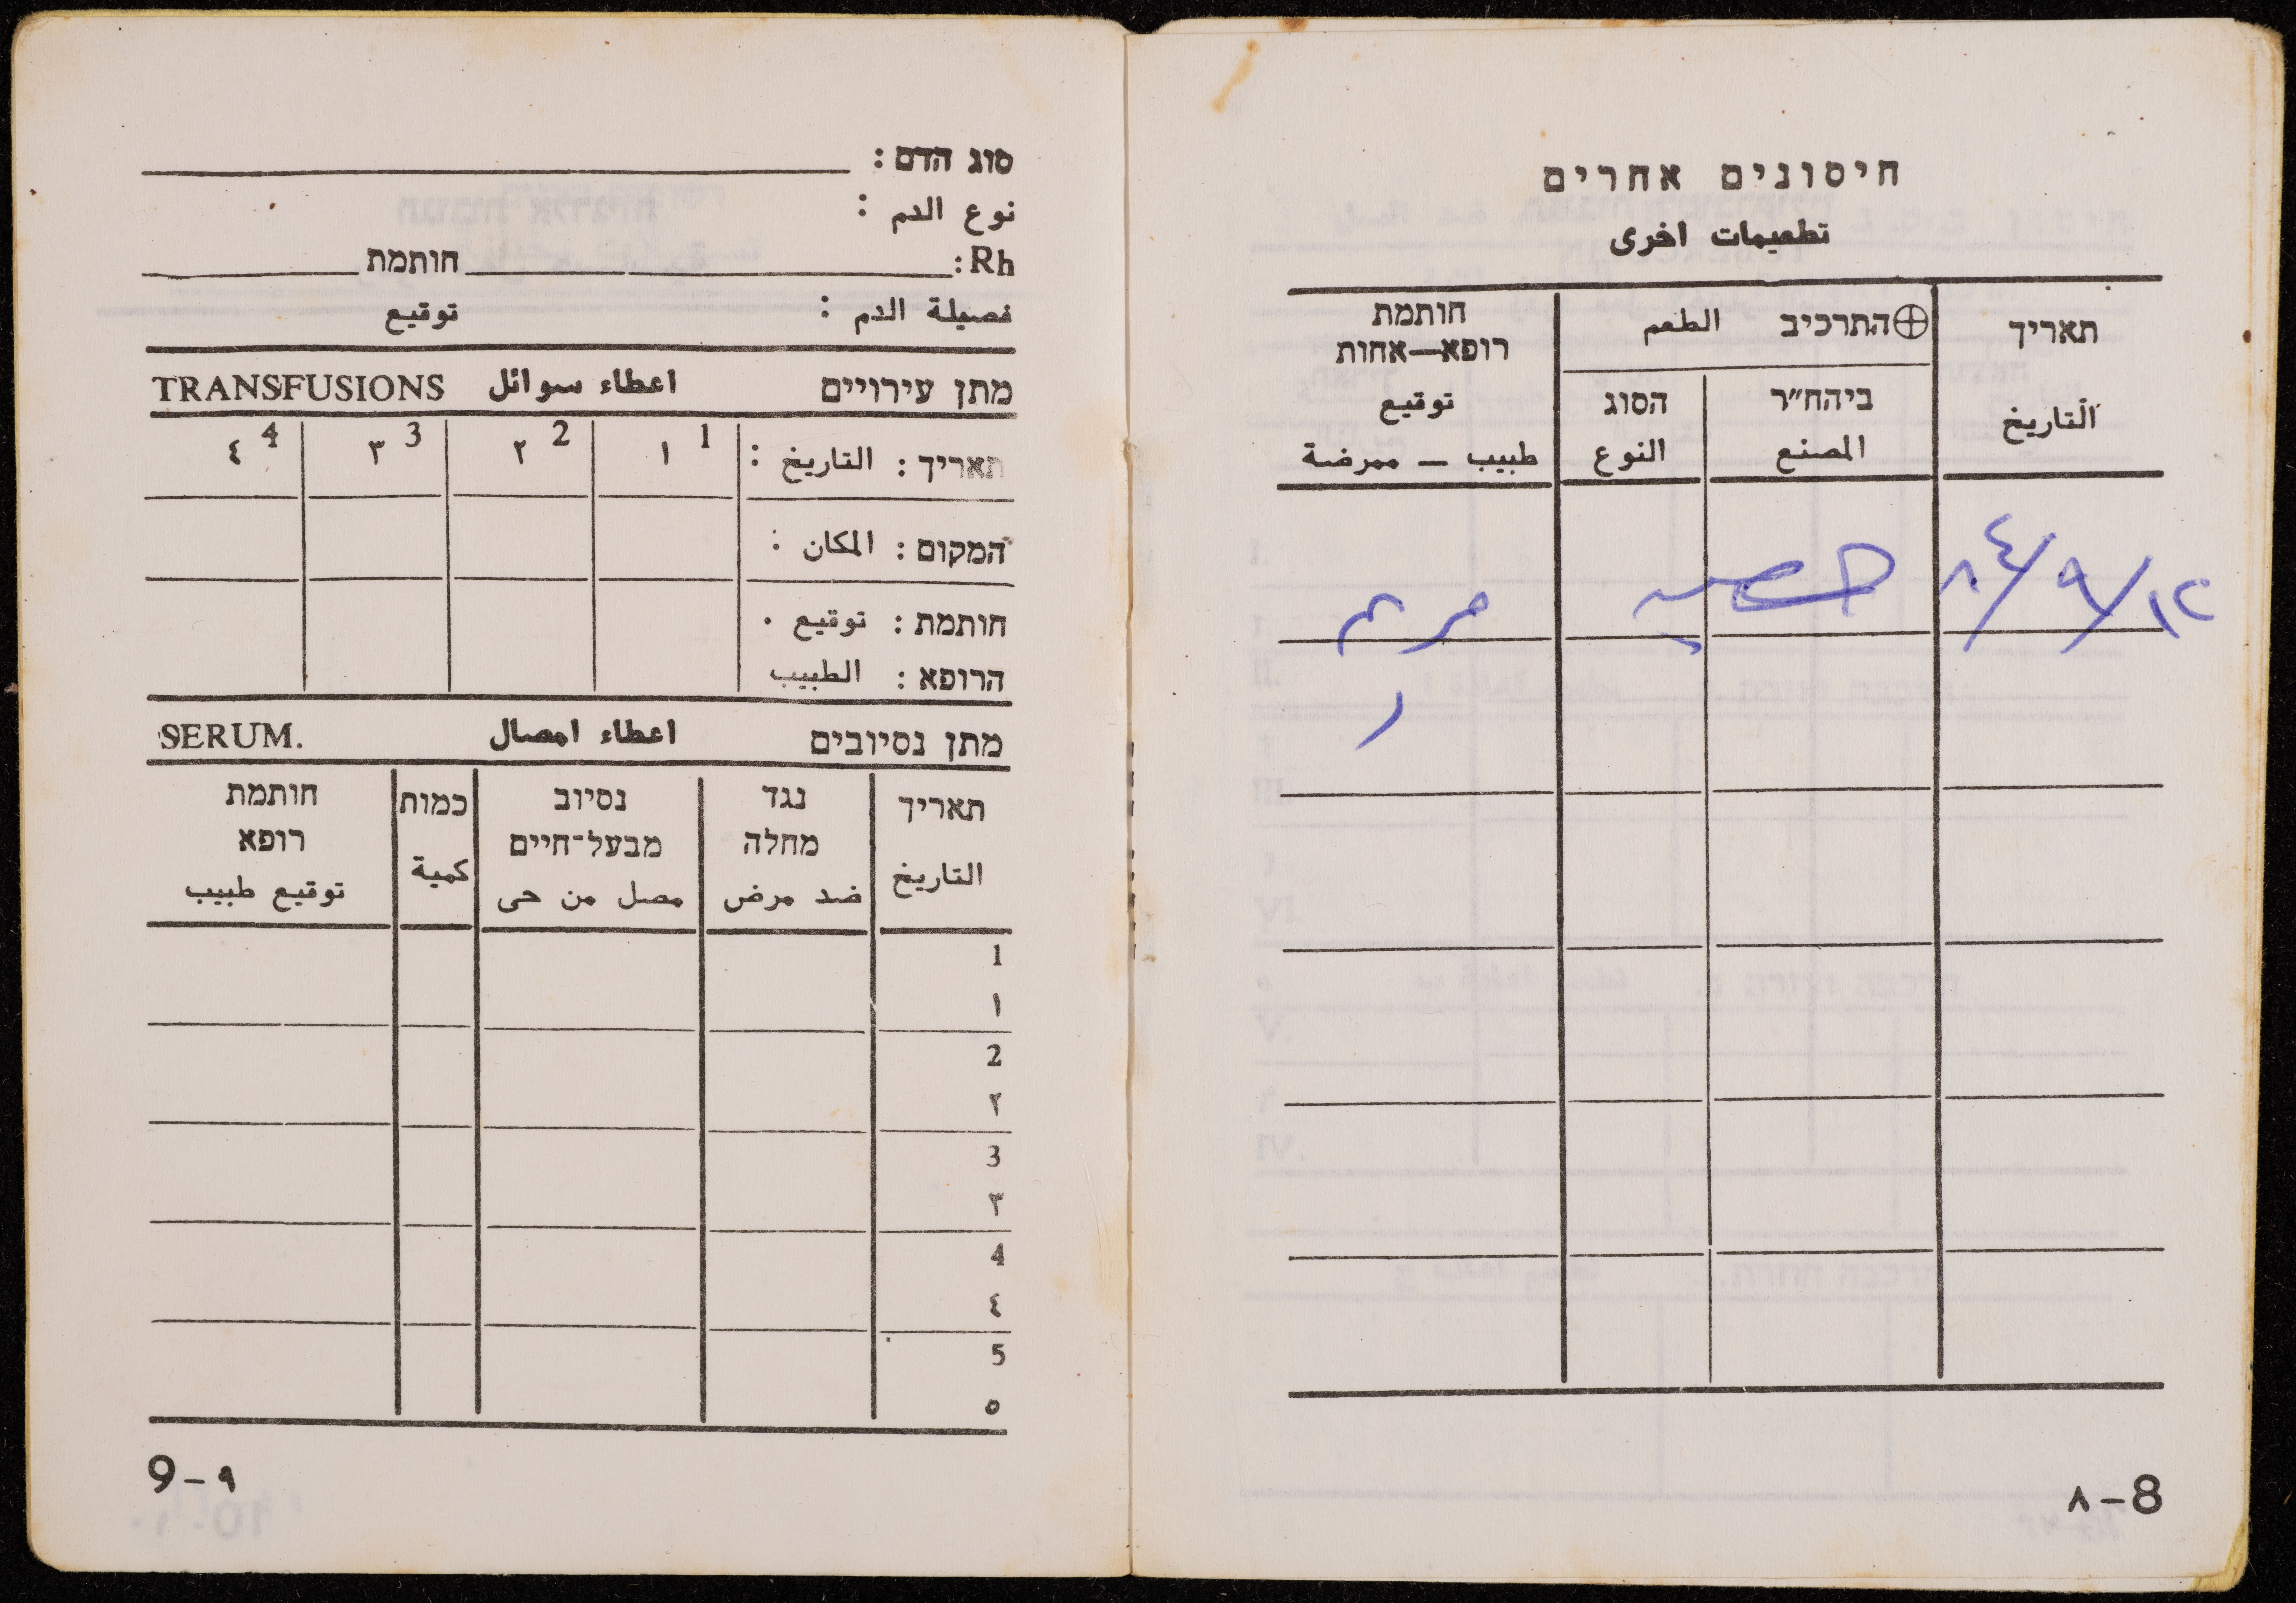 חיסונים אחרים
تطعيمات اخرى
תאריך
التاريخ
⊕התרכיב الطعم
ביהח״ר
المصنع
הסוג
النوع
חותמת
רופא—אחות
توقيع
طبيب – ممرضة
١٢/٩/٨٤ الحصبة مريم
٨–8
סוג הדם :
نوع الدم :
Rh: חותמת
فصيلة الدم : توقيع
מתן עירויים اعطاء سوائل TRANSFUSIONS
תאריך : التاريخ : 1 ١ 2 ٢ 3 ٣ 4 ٤
המקום : المكان :
חותמת : توقيع .
הרופא : الطبيب
מתן נסיובים اعطاء امصال SERUM.
תאריך
التاريخ
נגד
מחלה
ضد مرض
נסיוב
מבעל־חיים
مصل من حى
כמות
كمية
חותמת
רופא
توقيع طبيب
1
١
2
٢
3
٣
4
٤
5
٥
9–٩